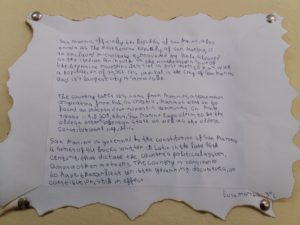 San Marino, officially the Republic of San Marino, also
known as the Most Serene Republic of San Marino, is
an enclaved microstate surrounded by Italy, situated
on the Italian Peninsula on the northeastern side of
the Apennine Mountains. Its size is just over 61 km² with
a population of Its capital is the City of San Marino
and its largest city is
The country takes its name from Marinus, a stonemason
originating from
founded an independent monastic community on Monte
Titano in 301, thus, San Marino lays claim to be the
oldest sovereign state as well as the oldest
constitutional republic.
San Marino is governed by the constitution of San Marino
a series of six books written in Latin in the late 16th
century, that dictate the country's political system,
among other matters. The country is considered
to have the earliest written governing documents, or
constitution, still in effect.